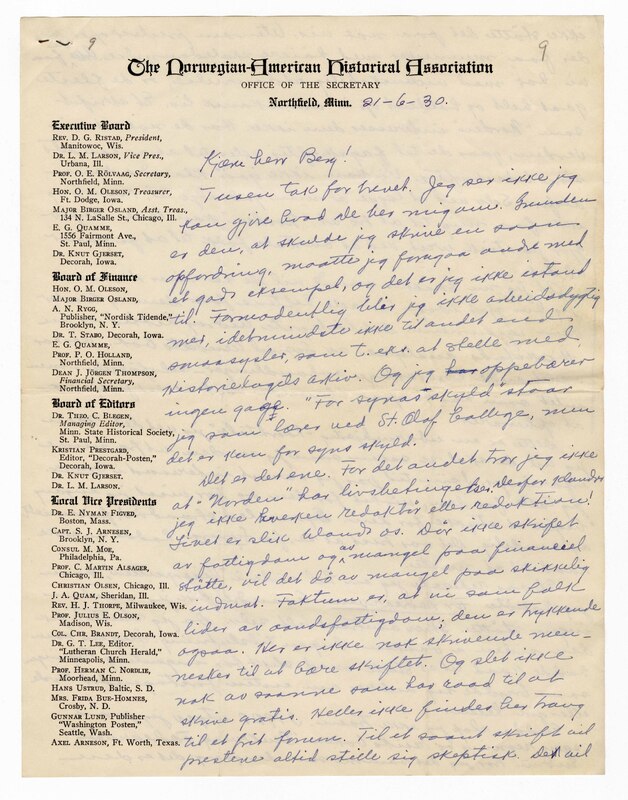 9
9
The Norwegian-American Historical Association
OFFICE OF THE SECRETARY
Northfield, Minn. 21-6-30.
Executive Board
REV. D. G. RISTAD, President,
Manitowoc, Wis.
DR. L. M. LARSON, Vice Pres.,
Urbana, Ill.
PROF. O. E. RÖLVAAG, Secretary,
Northfield, Minn.
HON. O. M. OLESON, Treasurer,
Ft. Dodge, Iowa.
MAJOR BIRGER OSLAND, Asst. Treas.,
134 N. LaSalle St., Chicago, Ill.
E. G. QUAMME,
1556 Fairmont Ave.,
St. Paul, Minn.
DR. KNUT GJERSET,
Decorah, Iowa.
Board of Finance
HON. O. M. OLESON,
MAJOR BIRGER OSLAND,
A. N. RYGG,
Publisher, "Nordisk Tidende,"
Brooklyn, N. Y.
DR. T. STABO, Decorah, Iowa.
E. G. QUAMME,
PROF. P. O. HOLLAND,
Northfield, Minn.
DEAN J. JÖRGEN THOMPSON,
Financial Secretary,
Northfield, Minn.
Board of Editors
DR. THEO. C. BLEGEN,
Managing Editor,
Minn. State Historical Society,
St. Paul, Minn.
KRISTIAN PRESTGARD,
Editor, "Decorah-Posten,"
Decorah, Iowa.
DR. KNUT GJERSET.
DR. L. M. LARSON.
Local Vice Presidents
DR. E. NYMAN FIGVED,
Boston, Mass.
CAPT. S. J. ARNESEN,
Brooklyn, N. Y.
CONSUL M. MOE,
Philadelphia, Pa.
PROF. C. MARTIN ALSAGER,
Chicago, Ill.
CHRISTIAN OLSEN, Chicago, Ill.
J. A. QUAM, Sheridan, Ill.
REV. H. J. THORPE, Milwaukee, Wis.
PROF. JULIUS E. OLSON,
Madison, Wis.
COL. CHR. BRANDT, Decorah, Iowa.
DR. G. T. LEE, Editor.
"Lutheran Church Herald,"
Minneapolis, Minn.
PROF. HERMAN C. NORDLIE,
Moorhead, Minn.
HANS USTRUD, Baltic, S. D.
MRS. FRIDA BUE-HOMNES,
Crosby, N. D.
GUNNAR LUND, Publisher
"Washington Posten,"
Seattle, Wash.
AXEL ARNESON, Ft. Worth, Texas.
Kjære herr Berg!
Tusen tak for brevet. Jeg ser ikke jeg
kan gjöre hvad De ber mig om. Grunden
er den, at skulde jeg skrive en saan
opfordring, maatte jeg foregaa andre med
et godt eksempel, og det er jeg ikke istand
til. Formodentlig blir jeg ikke arbeidsdygtig
mer, idetmindste ikke til andet end
smaasysler, som t. eks. at stelle med
Historielagets arkiv. Og jeg har oppebærer
ingen gage. "For syns skyld" staar
jeg som lærer ved St. Olaf College, men
det er kun for syns skyld.
Det er det ene. For det andet tror jeg ikke
at "Norden" har livsbetingelser. Derfor klandrer
jeg ikke hverken redaktör eller redaktion!
Livet er slik blandt os. Dör ikke skriftet
av fattigdom og av mangel paa financiel
stötte, vil det dö av mangel paa skikkelig
indmat. Faktum er, at vi som folk
lider av aandsfattigdom; den er trykkende
ogsaa. Her er ikke nok skrivende men-
nesker til at bære skriftet. Og slet ikke
nok av saanne som har raad til at
skrive gratis. Heller ikke findes her trang
til et frit forum. Til et saant skrift vil
prestene altid stille sig skeptisk. Det vil